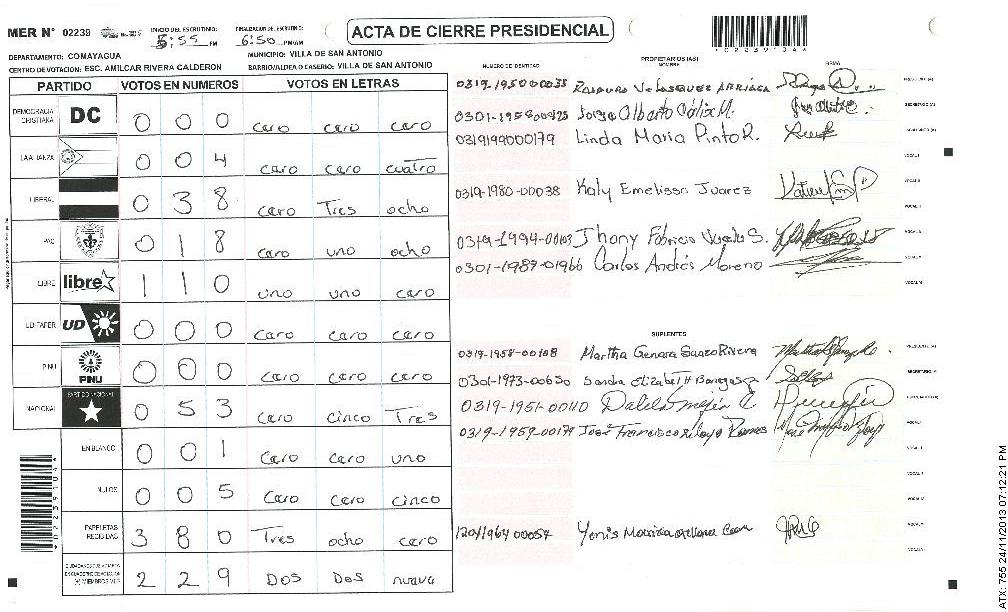 MER N° 02239
INICIO DEL ESCRUTINIO: 5:55 PM
FINALIZACION DEL ESCRUTINIO: 6:50 PM/AM
ACTA DE CIERRE PRESIDENCIAL
DEPARTAMENTO: COMAYAGUA
MUNICIPIO: VILLA DE SAN ANTONIO
CENTRO DE VOTACION: ESC. AMILCAR RIVERA CALDERON
BARRIO/ALDEA O CASERIO: VILLA DE SAN ANTONIO
PARTIDO VOTOS EN NUMEROS VOTOS EN LETRAS
DEMOCRACIA CRISTIANA DC 0 0 0 cero cero cero
LA ALIANZA 0 0 4 cero cero cuatro
LIBERAL 0 3 8 cero Tres ocho
PAC 0 1 8 cero uno ocho
LIBRE libre 1 1 0 uno uno cero
UD FAPER UD 0 0 0 cero cero cero
PINU PINU 0 0 0 cero cero cero
NACIONAL PARTIDO NACIONAL 0 5 3 cero cinco Tres
EN BLANCO 0 0 1 cero cero uno
NULOS 0 0 5 cero cero cinco
PAPELETAS RECIBIDAS 3 8 0 Tres ocho cero
(+) MIEMBROS MER 2 2 9 Dos Dos nueve
NUMERO DE IDENTIDAD PROPIETARIOS (AS) NOMBRE FIRMA
0319-1950-00035 Velasquez
0301-1958-00425 Jorge Alberto
0319199000179 Linda Maria Pinto R.
0319-1980-00038 Kaly Emelissa Juarez
0319-1994-00103 Jhony Fabricio
0301-1987-01966 Carlos Andrés Moreno
SUPLENTES
0319-1958-00108 Martha Genara Suazo Rivera
0301-1973-00650 Sandra Elizabeth Banegas
0319-1951-00110 Dalila Mejia C
0319-1959-00179 José Francisco
1201196400057 Yenis
ATX: 755 24/11/2013 07:12:21 PM